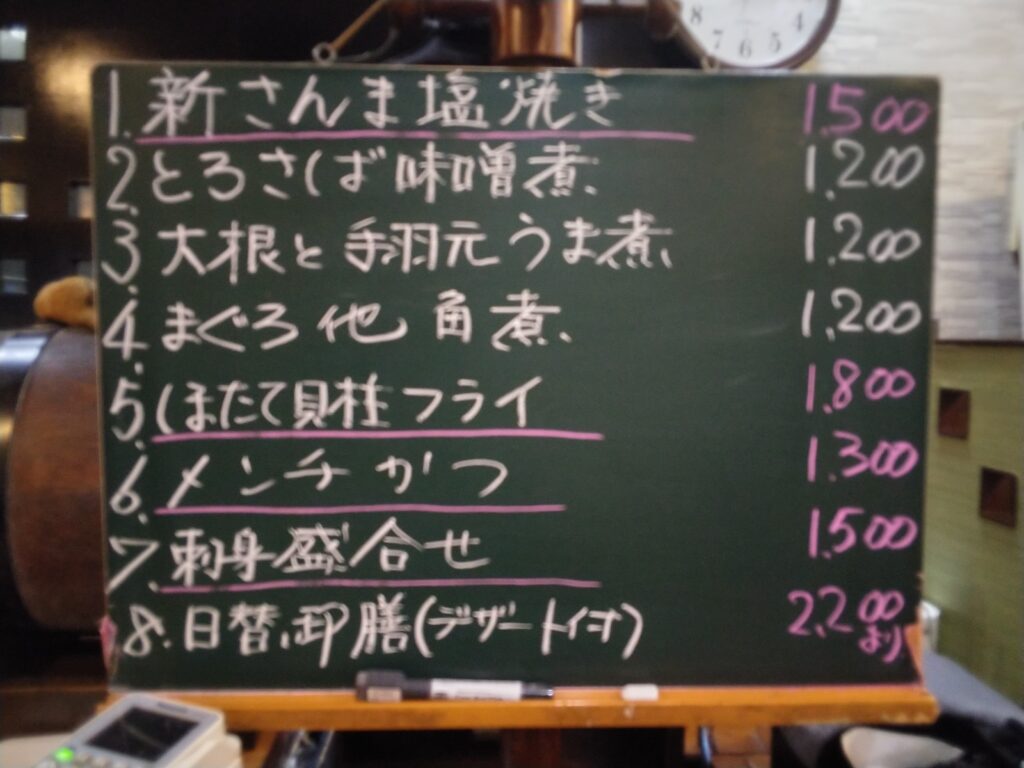 8 7 6 5 4
1. 新さんま塩焼き 1,500
2. とろさば味噌煮 1,200
3. 大根と手羽元うま煮 1,200
4. まぐろ他角煮 1,200
5. ほたて貝柱フライ 1,800
6. メンチかつ 1,300
7. 刺身盛合せ 1,500
8. 日替御膳(デザート付) 2,200
より